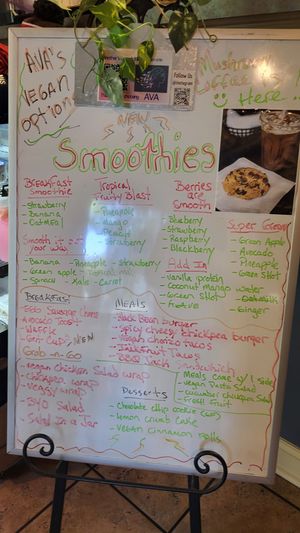 AVA'S
VEGAN
OPTION
Follow Us
AVA
Mushroom
Coffee is
Here
NEW
Smoothies
Breakfast
Smoothie
- Strawberry
- Banana
- Oatmeal
Tropical
Fruity Blast
- Pineapple
- Mango
- Peach
- Strawberry
Berries
are
Smooth
- Blueberry
- Strawberry
- Raspberry
- Blackberry
Super Green
- Green Apple
- Avocado
- Pineapple
- Green Shot
- Ginger
Smooth your
- Banana - Pineapple - Strawberry
- Green apple
- Spinach - Kale - Carrot
Add In
- Vanilla protein
- Coconut mango water
- Green Shot
- Oatmilk
Breakfast
Egg Sausage Cheese
Avocado Toast
Waffle
NEW
Grab-n-Go
- Vegan Chicken Salad wrap
- Chickpea wrap
- Veggy wrap
- BYO Salad
- Salad in a Jar
MEALS
- Black Bean burger
- Spicy cheezy chickpea burger
- Vegan chorizo tacos
- Jackfruit Tacos
- BBQ Jack Sandwich
- Meals come w/ 1 side
- Vegan Pasta Salad
- Cucumber chickpea Salad
- Fresh Fruit
Desserts
- Chocolate chip cookie
- Lemon crumb cake
- Vegan cinnamon rolls